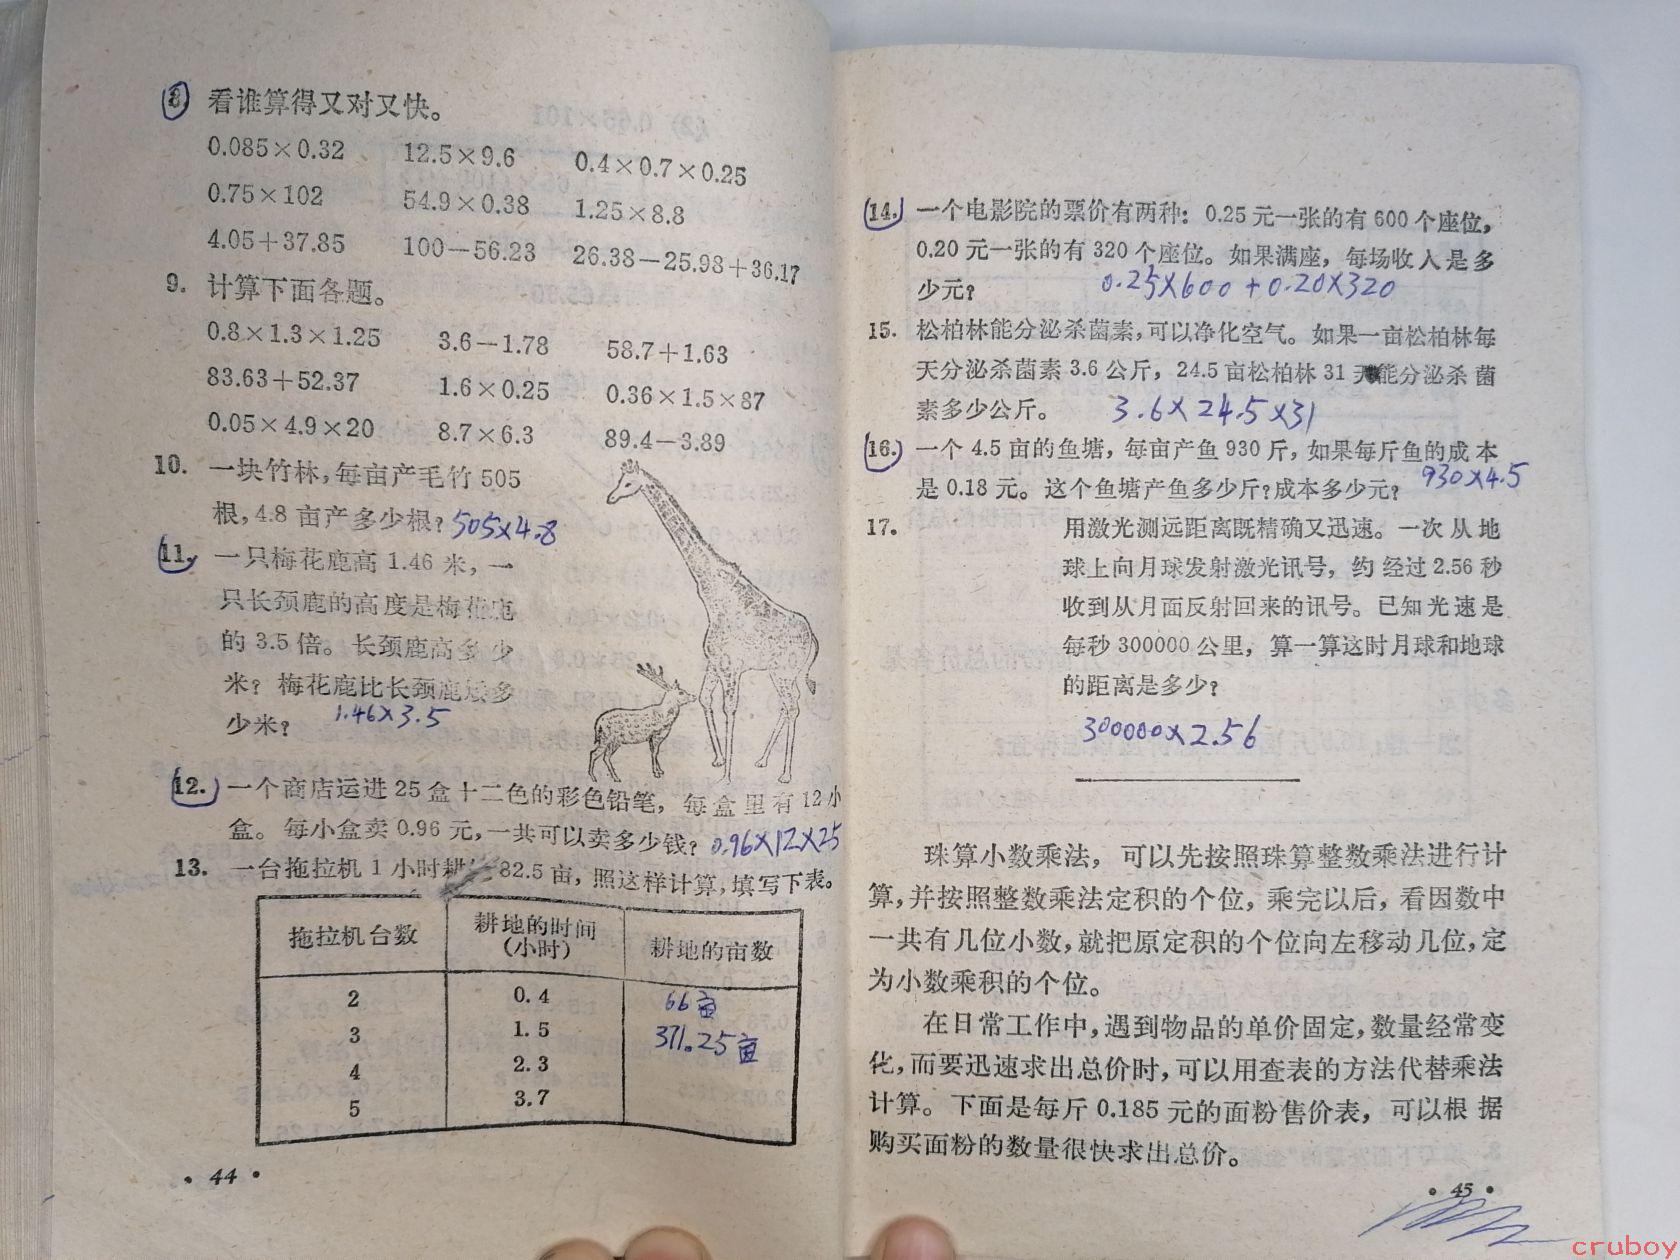 8. 看谁算得又对又快。
0.085×0.32 12.5×9.6 0.4×0.7×0.25
0.75×102 54.9×0.38 1.25×8.8
4.05+37.85 100-56.23 26.38-25.98+36.17
9. 计算下面各题。
0.8×1.3×1.25 3.6-1.78 58.7+1.63
83.63+52.37 1.6×0.25 0.36×1.5×87
0.05×4.9×20 8.7×6.3 89.4-3.89
10. 一块竹林,每亩产毛竹 505
根,4.8 亩产多少根? 505×4.8
11. 一只梅花鹿高 1.46 米,一
只长颈鹿的高度是梅花鹿
的 3.5 倍。长颈鹿高多少
米?梅花鹿比长颈鹿矮多
少米? 1.46×3.5
12. 一个商店运进 25 盒十二色的彩色铅笔,每盒里有 12 小
盒。每小盒卖 0.96 元,一共可以卖多少钱? 0.96×12×25
13. 一台拖拉机 1 小时耕 82.5 亩,照这样计算,填写下表。
拖拉机台数 耕地的时间(小时) 耕地的亩数
2 0.4 66亩
3 1.5 371.25亩
4 2.3
5 3.7
• 44 •
14. 一个电影院的票价有两种:0.25 元一张的有 600 个座位,
0.20 元一张的有 320 个座位。如果满座,每场收入是多
少元? 0.25×600+0.20×320
15. 松柏林能分泌杀菌素,可以净化空气。如果一亩松柏林每
天分泌杀菌素 3.6 公斤,24.5 亩松柏林 31 天能分泌杀菌
素多少公斤。 3.6×24.5×31
16. 一个 4.5 亩的鱼塘,每亩产鱼 930 斤,如果每斤鱼的成本
是 0.18 元。这个鱼塘产鱼多少斤?成本多少元? 930×4.5
17. 用激光测远距离既精确又迅速。一次从地
球上向月球发射激光讯号,约经过 2.56 秒
收到从月面反射回来的讯号。已知光速是
每秒 300000 公里,算一算这时月球和地球
的距离是多少?
300000×2.56
珠算小数乘法,可以先按照珠算整数乘法进行计
算,并按照整数乘法定积的个位,乘完以后,看因数中
一共有几位小数,就把原定积的个位向左移动几位,定
为小数乘积的个位。
在日常工作中,遇到物品的单价固定,数量经常变
化,而要迅速求出总价时,可以用查表的方法代替乘法
计算。下面是每斤 0.185 元的面粉售价表,可以根据
购买面粉的数量很快求出总价。
• 45 •
cruboy